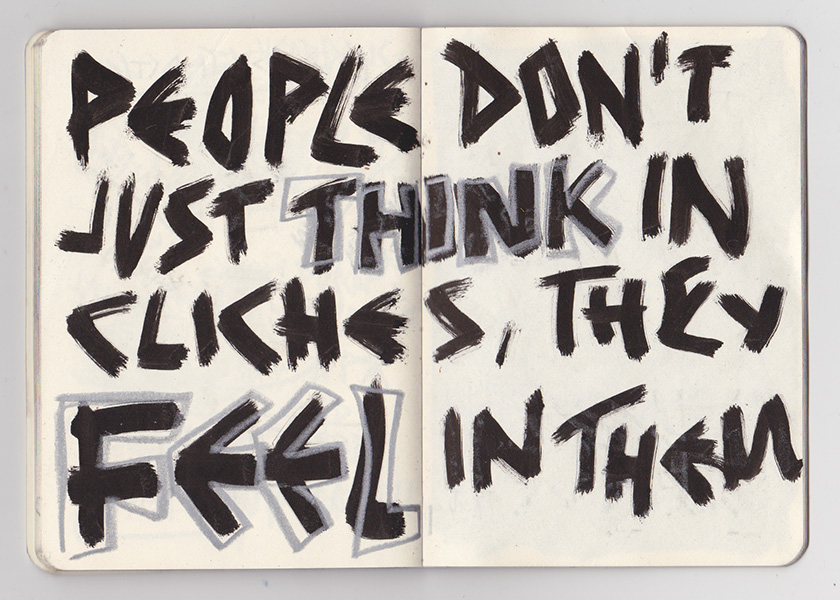 PEOPLE DON'T
JUST THINK IN
CLICHES, THEY
FEEL IN THEM